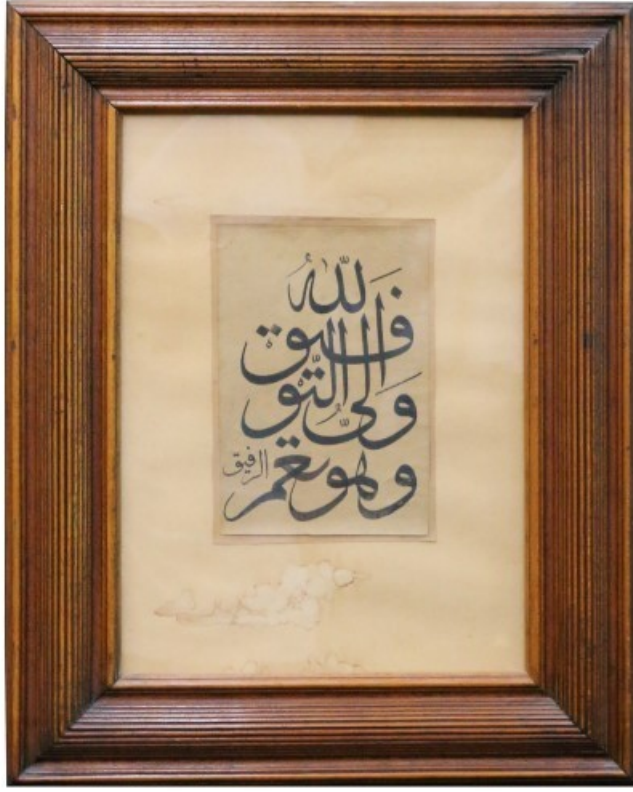 فالله
ولي التوفيق
وهو نعم الرفيق